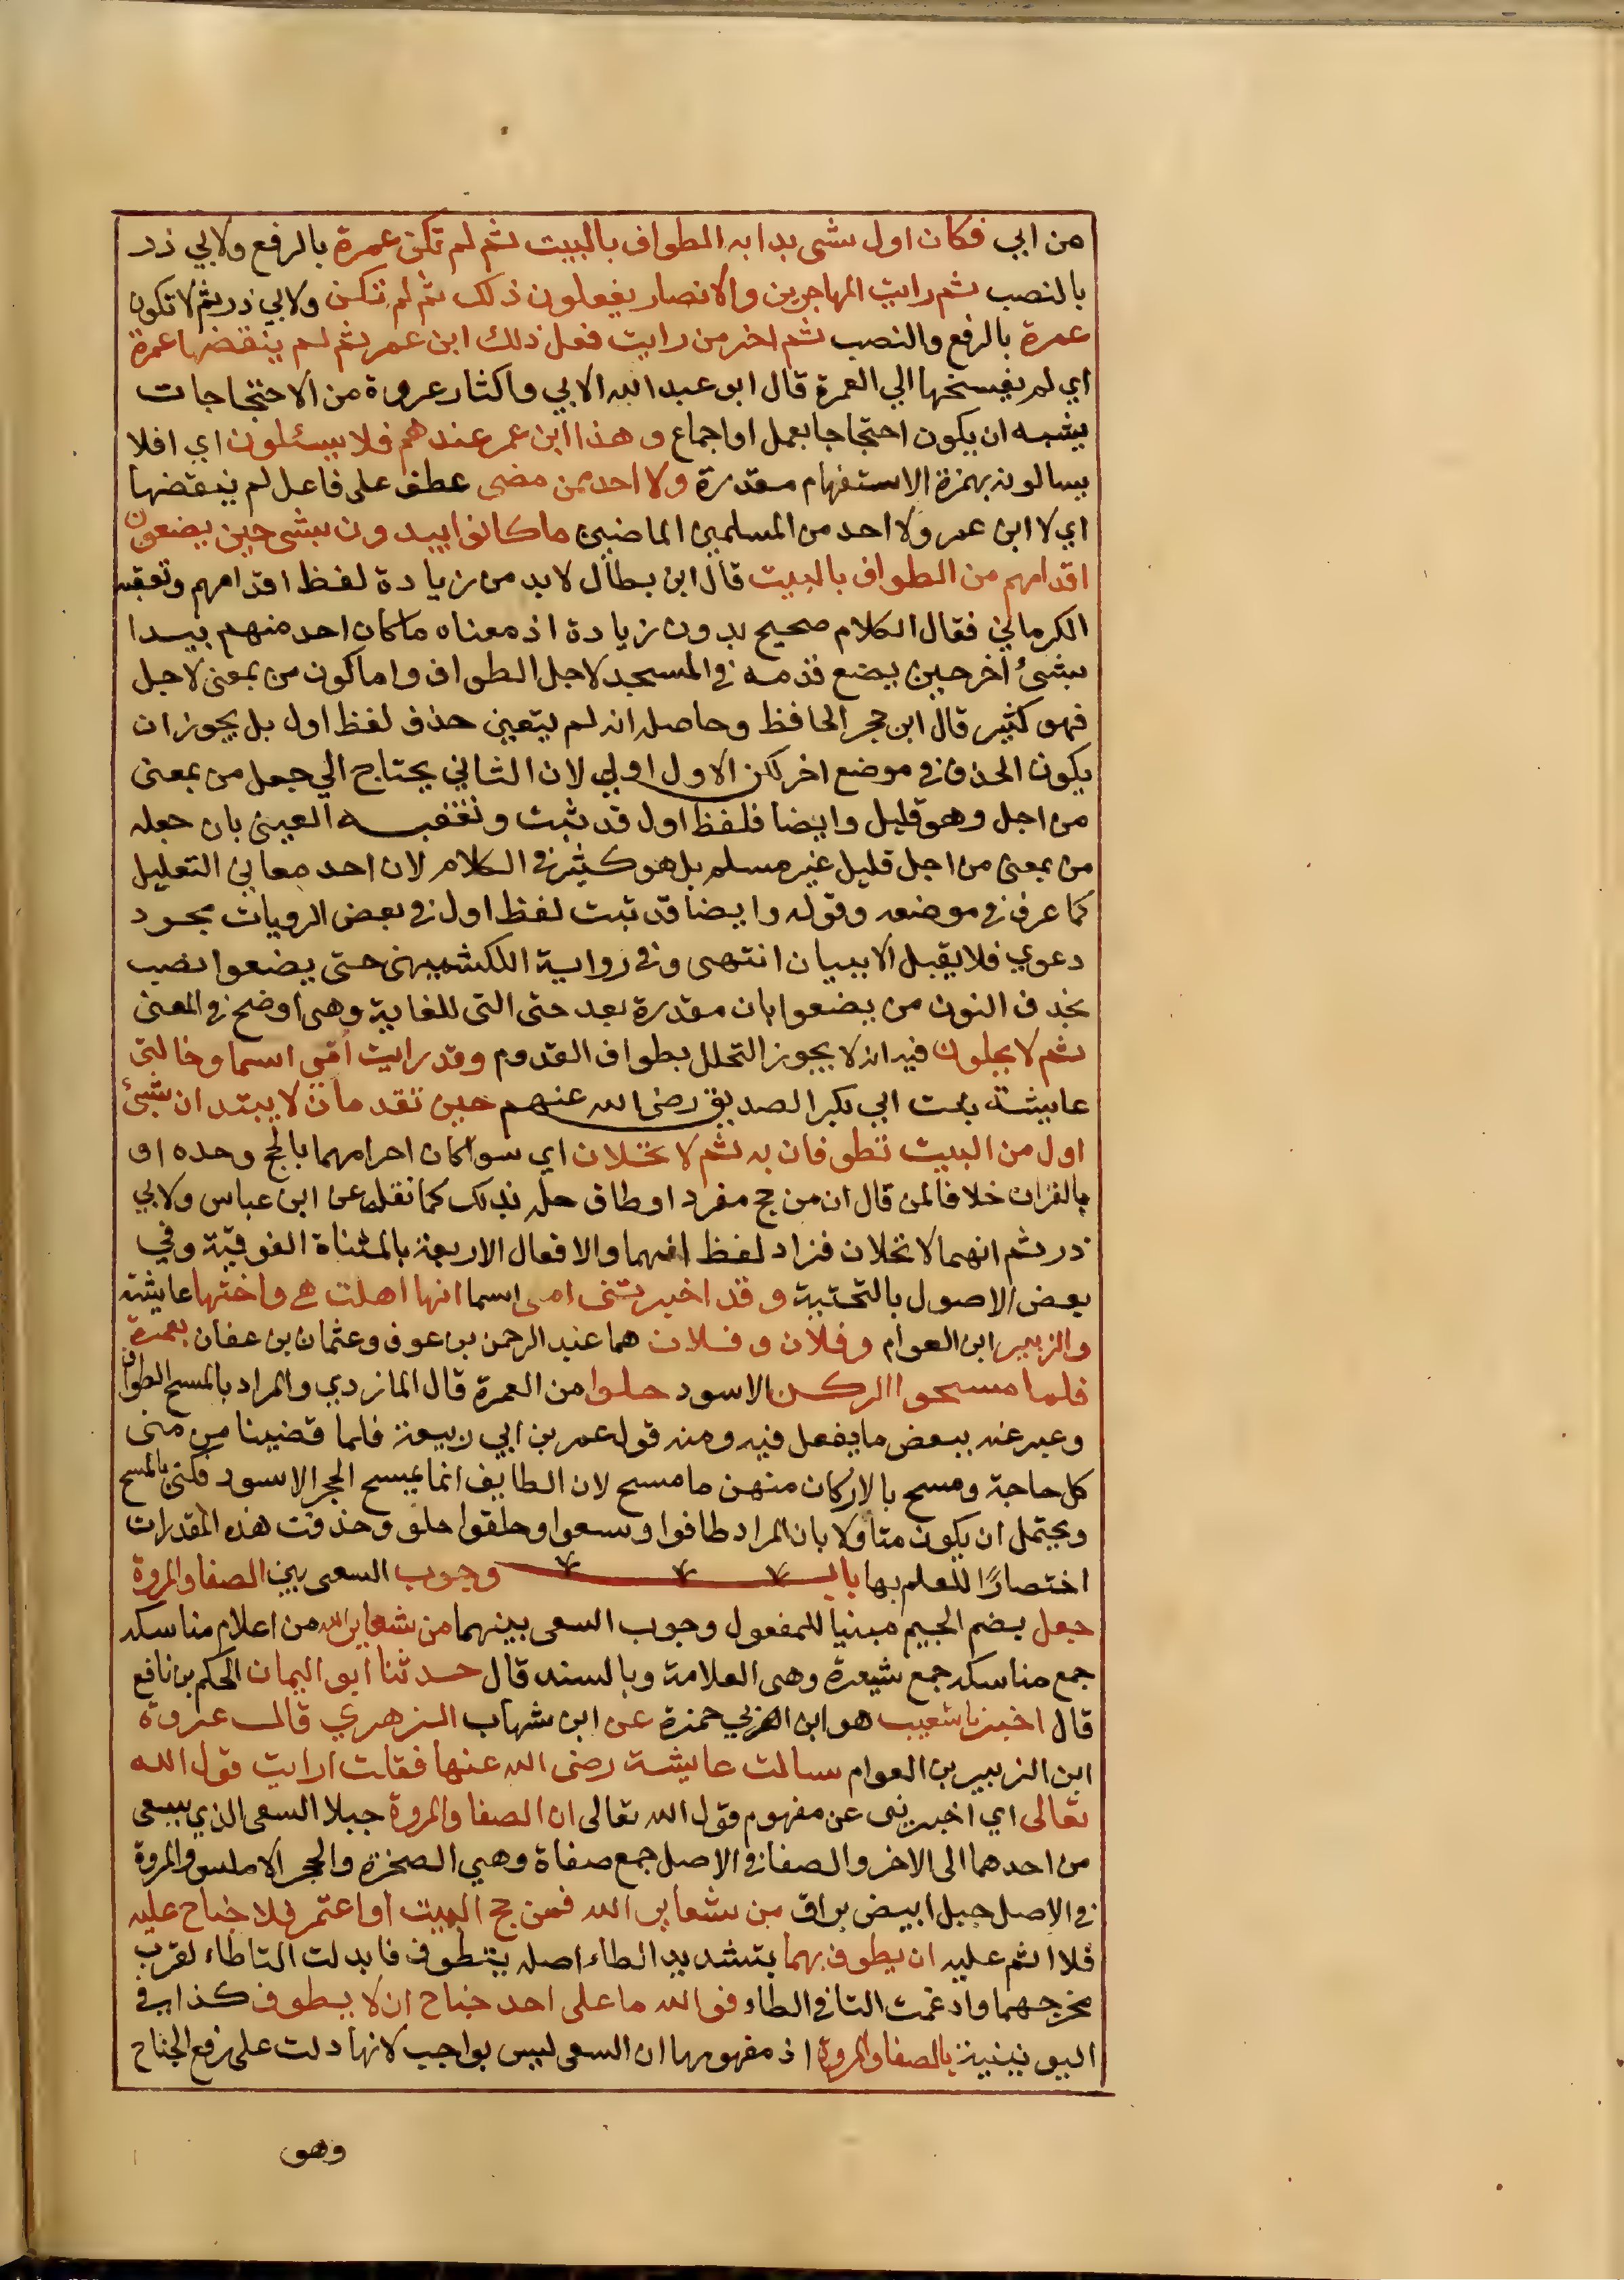 من ابي فكان اول شي بدا به الطواف بالبيت ثم لم تكن عمرة بالرفع ولابي ذر
بالنصب ثم رايت المهاجرين والانصار يفعلون ذلك ثم لم تكن ولابي ذر ثم لا تكون
عمرة بالرفع والنصب ثم اخر من رايت فعل ذلك ابن عمر ثم لم ينقضها عمرة
اي لم يفسخها الي العمرة قال ابو عبد الله الابي واكثار عروة من الاحتجاجات
يشبه ان يكون احتجاجا بعمل او اجماع وهذا ابن عمر عندهم فلا يسئلون اي افلا
يسالونه بهمزة الاستفهام مقدرة ولا احد ممن مضي عطف على فاعل لم ينقضها
اي لا ابن عمر ولا احد من المسلمين الماضين ما كانوا يبدون بشي حين يضعون
اقدامهم من الطواف بالبيت قال ابن بطال لا بد من زيادة لفظ اقدامهم وتعقبه
الكرماني فقال الكلام صحيح بدون زيادة اذ معناه ما كان احد منهم يبدا
بشيء اخر حين يضع قدمه في المسجد لاجل الطواف واما كون من بمعنى لاجل
فهو كثير قال ابن حجر الحافظ وحاصله انه لم يتعين حذف لفظ اول بل يجوز ان
يكون الحذف في موضع اخر لكن الاول اولي لان الثاني يحتاج الي جعل من بمعنى
من اجل وهو قليل وايضا فلفظ اول قد ثبت وتعقبه العيني بان جعله
من بمعنى من اجل قليل غير مسلم بل هو كثير في الكلام لان احد معاني التعليل
كما عرف في موضعه وقوله وايضا قد ثبت لفظ اول في بعض الرويات مجرد
دعوي فلا يقبل الا ببيان انتهى وفي رواية الكشميهني حتى يضعوا نصب
بحذف النون من يضعوا بان مقدرة بعد حتى التي للغاية وهي اوضح في المعنى
ثم لا يحلون فيه انه لا يجوز التحلل بطواف القدوم وقد رايت امي اسما وخالتي
عايشة بنت ابي بكر الصديق رضي الله عنهم حين تقدمان لا يبتدان بشيء
اول من البيت تطوفان به ثم لا تحلان اي سوا كان احرامهما بالحج وحده او
بالقران خلافا لمن قال ان من حج مفردا وطاف حل بذلك كما نقله عن ابن عباس ولابي
ذر ثم انهما لا تحلان فزاد لفظ انهما والافعال الاربعة بالمثناة الفوقية وفي
بعض الاصول بالتحتية وقد اخبرتني امي اسما انها اهلت هي واختها عايشة
والزبير ابن العوام وفلان وفلان هما عبد الرحمن بن عوف وعثمان بن عفان بعمرة
فلما مسحوا الركن الاسود حلوا من العمرة قال المازدي والمراد بالمسح الطواف
وعبر عنه ببعض ما يفعل فيه ومنه قول عمر بن ابي ربيعة فلما قضينا من منى
كل حاجة ومسح بالاركان منهن ما مسح لان الطايف انما يمسح الحجر الاسود فكنى بالمسح
ويحتمل ان يكون متاولا بان المراد طافوا وسعوا وحلقوا حلو وحذفت هذه المقدرات
اختصارًا للعلم بها باب وجوب السعي بين الصفا والمروة
جعل بضم الجيم مبنيا للمفعول وجوب السعي بينهما من شعاير الله من اعلام مناسكه
جمع مناسكه جمع شيعرة وهي العلامة وبالسند قال حدثنا ابو اليمان الحكم بن نافع
قال اخبرنا شعيب هو ابن ابي حمزة عن ابن شهاب الزهري قال عروة
ابن الزبير بن العوام سالت عايشة رضي الله عنها فقلت ارايت قول الله
تعالى اي اخبريني عن مفهوم قول الله تعالى ان الصفا والمروة جبلا السعي الذي يسعي
من احدهما الى الاخر والصفا في الاصل جمع صفاة وهي الصخرة والحجر الاملس والمروة
في الاصل جبل ابيض براق من شعاير الله فمن حج البيت او اعتمر فلا جناح عليه
فلا اثم عليه ان يطوف بهما بتشديد الطاء اصله يتطوف فابدلت التا طاء لقرب
مخرجهما وادغمت التا في الطاء فوالله ما على احد جناح ان لا يطوف كذا في
اليونينية بالصفا والمروة اذ مفهومها ان السعي ليس بواجب لانها دلت على رفع الجناح
وهو